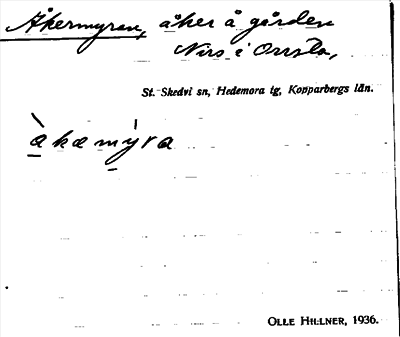 Åkermyran, åker å gården
Nirs i Orrsta,
St. Skedvi sn, Hedemora tg, Kopparbergs län.
àkæmy̍ra
OLLE HILLNER, 1936.